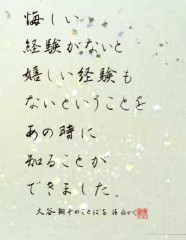 悔しい
経験がないと
嬉しい経験も
ないということを
あの時に
知ることが
できました。
大谷翔平のことばを